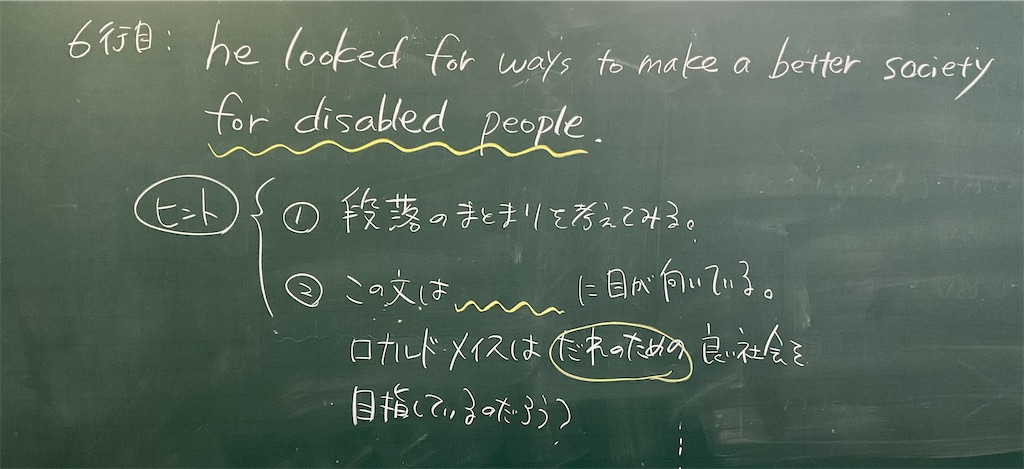 6行目: he looked for ways to make a better society
for disabled people.
ヒント ① 段落のまとまりを考えてみる。
② この文は に目が向いている。
ロナルド・メイスは だれのための 良い社会を
目指しているのだろう?